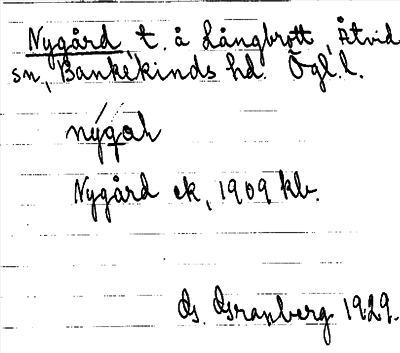 Nygård t. å Långbrott, Åtvid
sn, Bankekinds hd. Ögl. l.
nýgaꝉ
Nygård ek, 1909 kb.
G. Granberg 1929.